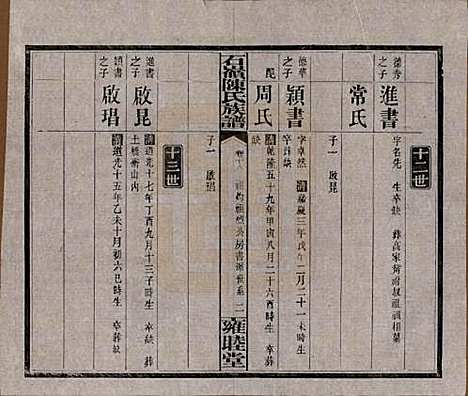 十二世
德秀之子
進書
字名先 生卒缺 葬高家
常氏
子一 啟昆
德華之子
穎書
字卓然 清嘉慶三年戊午二月二十一未時生
卒葬缺
配
周氏
清乾隆五十九年甲寅八月二十六酉時生 卒葬
缺
子 啟琩
石嶺陳氏族譜
雍睦堂
十三世
進書之子
啟昆
清道光十七年丁酉九月十三子時生 卒葬
土橋衝山內
穎書之子
啟琩
清道光十五年乙未十月初六巳時生 卒葬缺